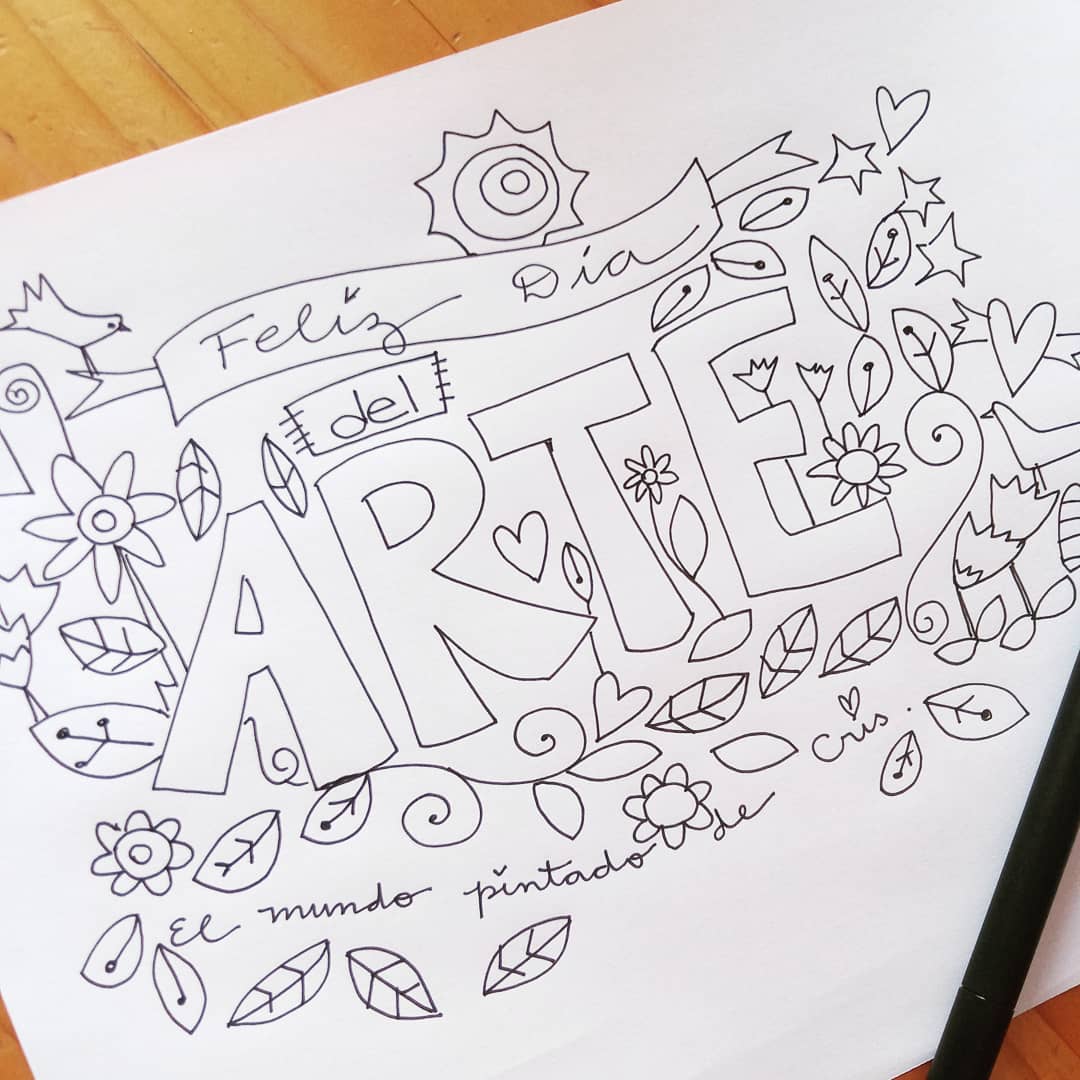 Feliz Día
del
ARTE
El mundo pintado de cris.